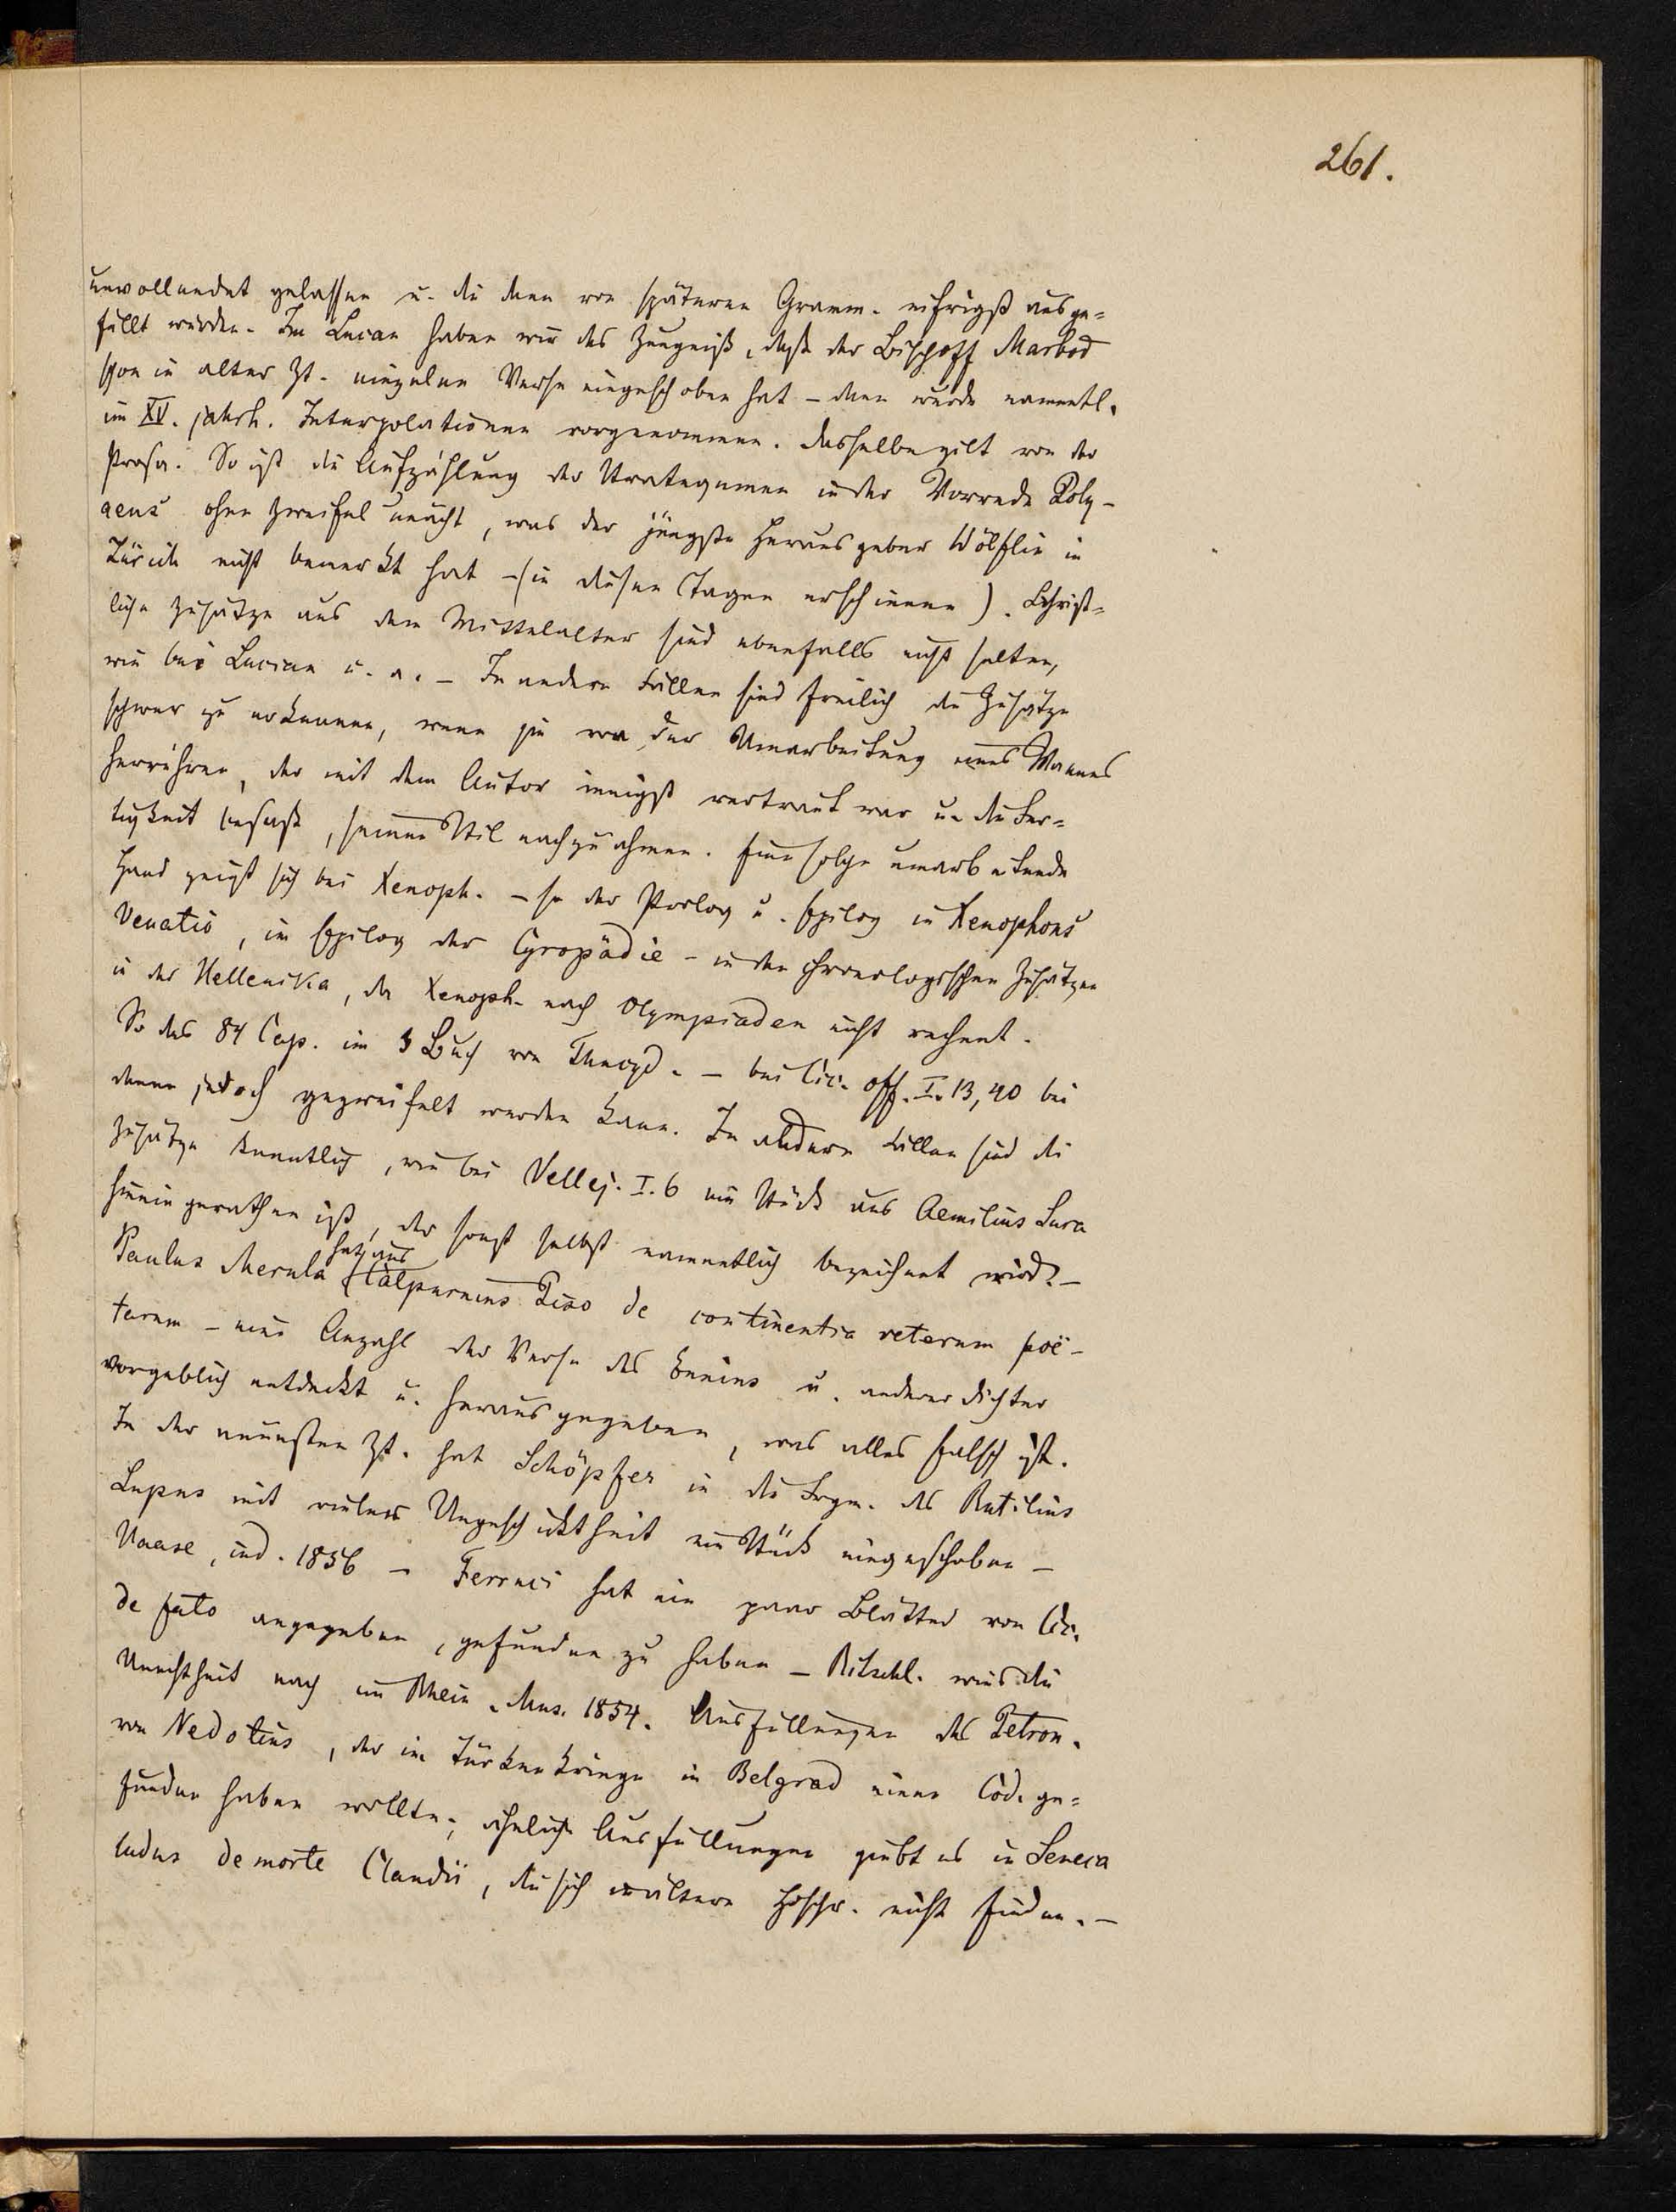 261.
unvollendet gelassen u. die dann von späteren Gramm. eifrigst ausge=
füllt wurden. Im Lucan haben wir das Zeugniß, daß der Bischoff Marbod
schon in alter Zt. einzelne Verse eingeschoben hat – dann wurde namentl.
im XV. Jahrh. Interpolationen vorgenommen. Dasselbe gilt von der
Prosa. So ist die Aufzählung der Strategemen in der Vorrede Poly-
aens ohne Zweifel unächt, was der jüngste Herausgeber Wölflin in
Zürich nicht bemerkt hat – (in diesen Tagen erschienen). Christ=
liche Zusätze aus dem Mittelalter sind ebenfalls nicht selten,
wie bei Lucian u. a. – In andern Fällen sind freilich die Zusätze
schwer zu erkennen, wenn sie von der Umarbeitung eines Mannes
herrühren, der mit dem Autor innigst vertraut war u. die Fer=
tigkeit besaß, seinen Stil nachzuahmen. Eine solche umarbeitende
Hand zeigt sich bei Xenoph. – so der Prolog u. Epilog in Xenophons
Venatio, im Epilog der Cyropädie – in den chronologischen Zusätzen
in der Hellenika, da Xenoph. nach Olympiaden nicht rechnet.
So das 84 Cap. im 3 Buch von Thucyd. – bei Cic. off. I. 13, 40 bei
denen jedoch gezweifelt werden kann. In andern Fällen sind die
Zusätze kenntlich, wie bei Vellej. I. 6 ein Stück aus Aemilius Sura
hineingerathen ist, der sonst selbst namentlich bezeichnet wird. –
Paulus Merula hat aus Calpurnius Piso de continentia veterum poë-
tarum – eine Anzahl der Verse des Ennius u. anderer Dichter
vorgeblich entdeckt u. herausgegeben, was alles falsch ist.
In der neuesten Zt. hat Schöpfer in die Frgm. des Rutilius
Lupus mit vieler Ungeschicktheit ein Stück eingeschoben –
Haase, ind. 1856 – Ferruci hat ein paar Blätter von Cic.
de fato angegeben, gefunden zu haben – Ritschl. wies die
Unechtheit nach im Rhein. Mus. 1854. Ausfüllungen des Petron.
von Nedotius, der im Türkenkriege in Belgrad einen Cod. ge=
funden haben wollte; ähnliche Ausfüllungen giebt es in Seneca
ludus de morte Claudii, die sich in älteren Hdschr. nicht finden. –